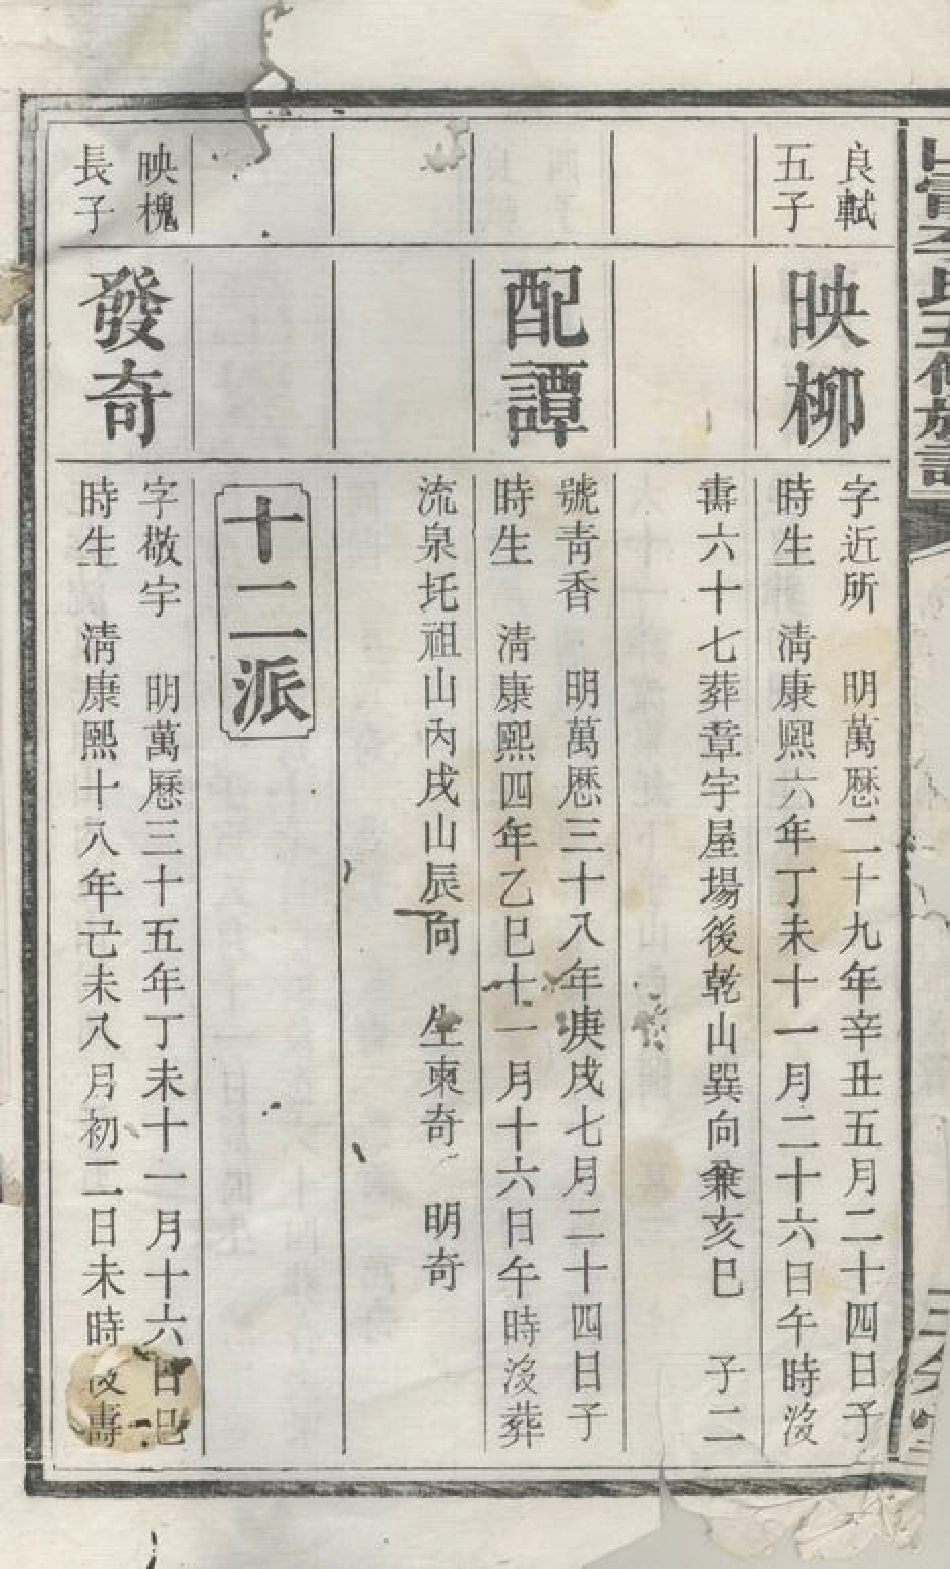 良軾
五子
映柳
字近所　明萬曆二十九年辛丑五月二十四日子
時生　清康熙六年丁未十一月二十六日午時歿
壽六十七葬章宇屋場後乾山巽向兼亥巳　子二
配譚
號青香　明萬曆三十八年庚戌七月二十四日子
時生　清康熙四年乙巳十一月十六日午時歿葬
流泉圫祖山內戌山辰向　生柬奇　明奇
十二派
映槐
長子
發奇
字敬宇　明萬曆三十五年丁未十一月十六日巳
時生　清康熙十八年己未八月初二日未時歿壽